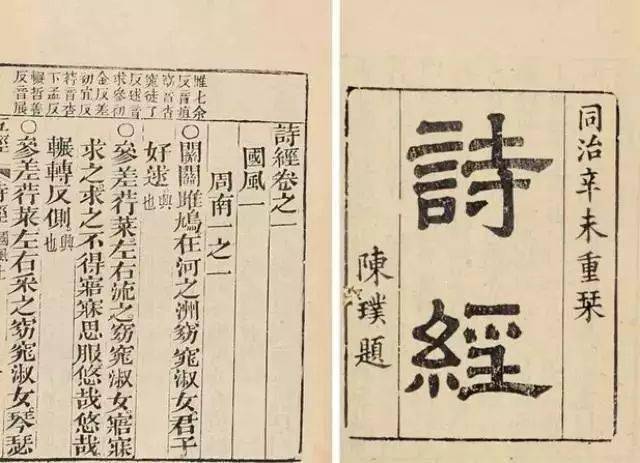 同治辛未重栞
詩經
陳璞題
雎七余
反音疽
窈音杳
窕徒了
反逑音
求參初
金反差
初宜反
荇音杏
下孟反
輾哲善
反音展
詩經卷之一
國風一
周南一之一
〇關關雎鳩在河之洲窈窕淑女君子
好逑興也
〇參差荇菜左右流之窈窕淑女寤寐
求之求之不得寤寐思服悠哉悠哉
輾轉反側興也
〇參差荇菜左右采之窈窕淑女琴瑟